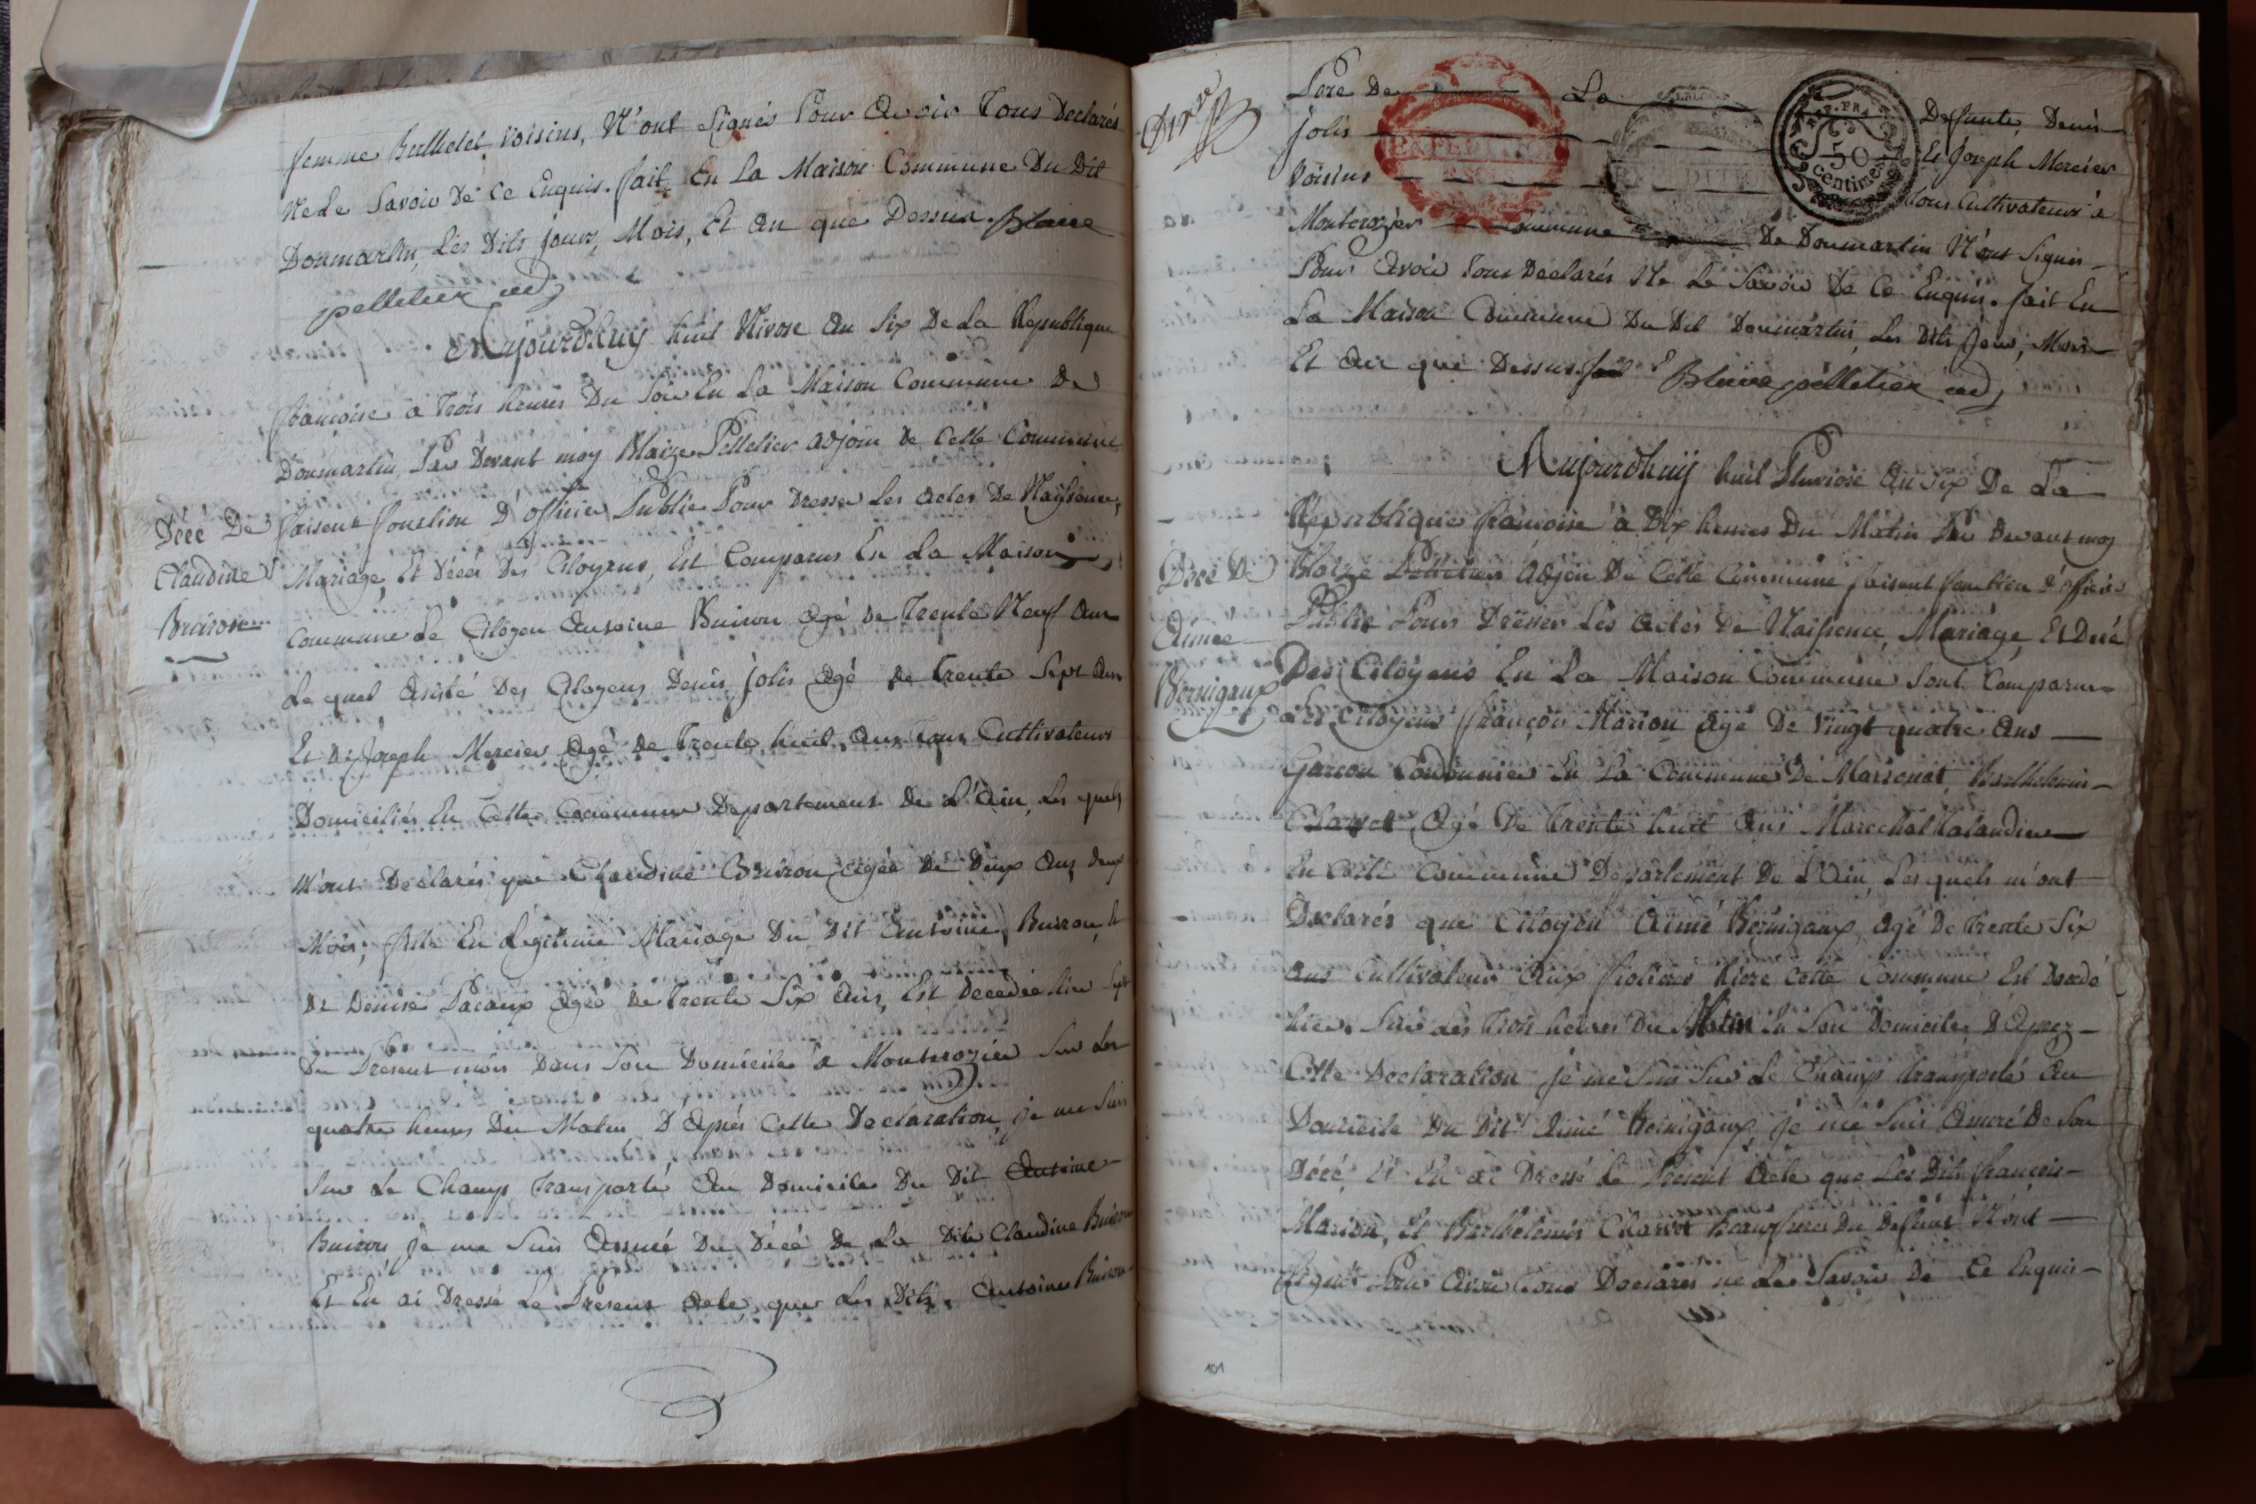 femme Buthelet voisins, N'ont Signés Pour Avoir Tous Declarés
Ne Le Savoir De Ce Enquis. fait En La Maison Commune Du Dit
Donmartin, Les Dits jours, Mois, Et An que Dessus. Blaise
pelletier adj
Aujourdhuy huit Nivose An Six De La Republique
francoise a Trois heures Du Soir En La Maison Commune De
Donmartin, Par Devant moy Blaize Pelletier adjoin De Cette Commune
Décé De
Claudine
Buiron
faisent fonction D'officier Public Pour Dresser Les Actes De Naissence,
Mariage, Et Décés Des Citoyens, Est Comparus En La Maison
Commune Le Citoyen Antoine Buiron Agé De Trente Neuf Ans
Le quel Assisté Des Citoyens Denis Jolis Agé De trente Sept Ans
Et De Joseph Mercier Agé De trente huit Ans Tous Cultivateurs
Domiciliés En Cette Commune Departement De L'Ain, Les quels
M'ont Declarés que Claudine Buiron Agée De Deux Ans Deux
Mois, fille En Legitime Mariage Du Dit Antoine Buiron, Et
De Denise Pacaux Agée De Trente Six Ans, Est Decedée hier Sept
Du Present mois Dans Son Domicile a Montcrozier Sur Les
quatre heures Du Matin D'Aprés Cette Declaration je me Suis
Sur Le Champ Transporté Au Domicile Du Dit Antoine
Buiron je me Suis Assuré Du Décé De La Dite Claudine Buiron
Et En ai Dressé Le Present Acte, que Les Dits Antoine Buiron
Pere De La Defunte, Denis
Jolis Et Joseph Mercier
Voisins Tous Cultivateurs à
Montcrozier Commune De Donmartin N'ont Signés
Pour Avoir Tous Declarés Ne Le Savoir De Ce Enquis. fait En
La Maison Commune Du Dit Donmartin, Les Dits Jour, Mois
Et An que Dessus. Blaise pelletier adj
REP. FRA.
50
centimes
Aujourdhuy huit Pluviose An Six De La
Republique francoise à Dix heures Du Matin Par Devant moy
Décé De
Aimée
Bornigaux
Blaize Pelletier Adjoin De Cette Commune faisent fonction d'officier
Public Pour Dresser Les Actes De Naissence, Mariage, Et Décé
Des Citoyens En La Maison Commune Sont Comparus
Les Citoyens François Marion Agé De Vingt quatre Ans
Garcon Cordonnier En La Commune De Marsonat, Barthelemis
Charvet Agé De trente huit Ans Marechal Talandier
En Cette Commune Departement De L'Ain, Les quels m'ont
Declarés que Citoyen Aimé Bornigaux, Agé De trente Six
Ans Cultivateur Aux hiere Cette Commune Est Decedé
hier Sur Les Trois heures Du Matin En Son Domicile, D'Aprez
Cette Declaration je me Suis Sur Le Champ transporté Au
Domicile Du Dit Aimé Bornigaux, je me Suis Assuré De Son
Décé, Et En ai Dressé Le Present Acte que Les Dits François
Marion, Et Barthelemis Charvet Beaufreres Du Defunt N'ont
Signés Pour Avoir Tous Declarés ne Le Savoir De Ce Enquis
101